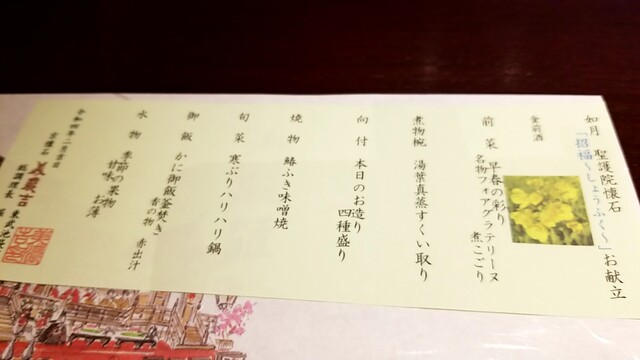 如月 聖護院懐石
「招福～しょうふく～」お献立
食前酒
前菜 早春の彩り
名物フォアグラテリーヌ
煮こごり
煮物椀 湯葉真蒸すくい取り
向付 本日のお造り
四種盛り
焼物 鰆ふき味噌焼
旬菜 寒ぶりハリハリ鍋
御飯 かに御飯釜焚き
香の物 赤出汁
水物 季節の果物
甘味 お薄
令和四年二月吉日
京懐石 美濃吉 東武池袋
総調理長